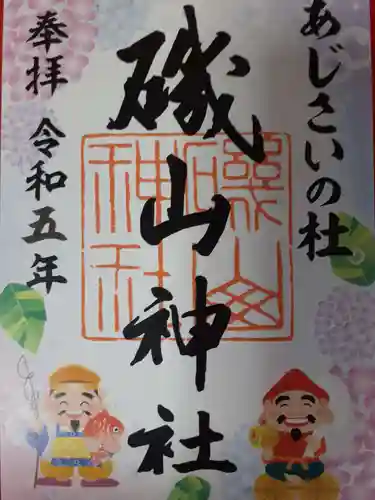 あじさいの杜
磯山神社
奉拝 令和五年
磯山神社